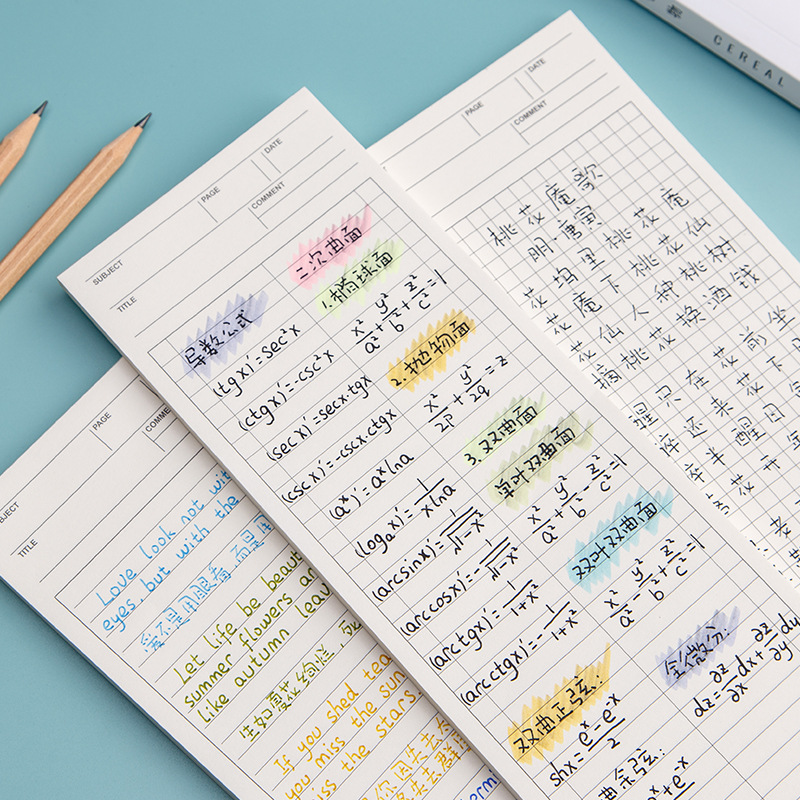 CEREAL
SUBJECT
PAGE
DATE
COMMENT
TITLE
导数公式
(tgx)'=sec²x
(ctgx)'=-csc²x
(secx)'=secx·tgx
(cscx)'=-cscx.ctgx
(aˣ)'=aˣlna
(logₐx)'=1/xlna
(arcsinx)'=1/√1-x²
(arccosx)'=-1/√1-x²
(arctgx)'=1/1+x²
(arcctgx)'=-1/1+x²
双曲正弦:
shx=eˣ-e⁻ˣ/2
曲余弦:
x+e⁻ˣ
二次曲面
1.椭球面
x²/a²+y²/b²+z²/c²=1
2.抛物面
x²/2p+y²/2q=z
3.双曲面
单叶双曲面
x²/a²+y²/b²-z²/c²=1
双叶双曲面
x²/a²-y²/b²+z²/c²=1
全微分:
dz=∂z/∂x dx+∂z/∂y dy
PAGE
DATE
COMMENT
桃花庵歌
明·唐寅
花坞里桃花庵
花庵下桃花仙
花仙人种桃树
摘桃花换酒钱
醒只在花前坐
醉还来花下
半醉半醒日
花开
BJECT
PAGE
COMME
TITLE
Love look not wit
eyes, but with the
爱不是用眼看，而是用
Let life be beaut
summer flowers an
like autumn leav
生如夏花绚烂，死
If you shed tea
you miss the sun
miss the stars.
你因失去
失去群
ermi